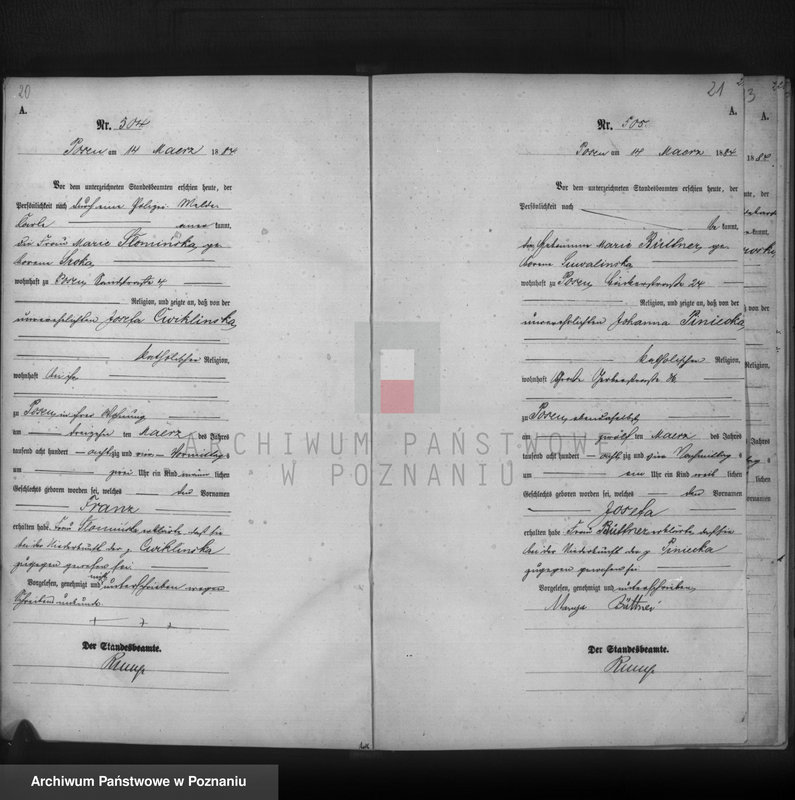 20
A.
Nr. 504
Posen am 14 Maerz 1884
Vor dem unterzeichneten Standesbeamten erschien heute, der
Persönlichkeit nach durch eine Polizei Melde
kannt,
die Frau Marie Słominska, ge
borene
wohnhaft zu Posen 4
Religion, und zeigte an, daß von der
unverehelichten Josefa Cwiklinska,
katholischer Religion,
wohnhaft bei ihr
zu Posen, in ihrer Wohnung
am dreizehn ten Maerz des Jahres
tausend acht hundert achtzig und vier Vormittag s
um Uhr ein Kind männ lichen
Geschlechts geboren worden sei, welches den Vornamen
Franz
erhalten habe. Frau Słominska erklärte, daß sie
bei der Niederkunft der p Cwiklinska
zugegen gewesen sei.
Vorgelesen, genehmigt und nicht unterschrieben wegen
Schreibens unkunde
+ + +
Der Standesbeamte.
21
A.
Nr. 505
Posen am 14 Maerz 1884
Vor dem unterzeichneten Standesbeamten erschien heute, der
Persönlichkeit nach
be kannt,
die Hebamme Marie Büttner, ge
borene
wohnhaft zu Posen, 24
Religion, und zeigte an, daß von der
unverehelichten Johanna Piniecka,
katholischen Religion,
wohnhaft
zu Posen, ebendaselbst
am zwölf ten Maerz des Jahres
tausend acht hundert achtzig und vier Nachmittag s
um ein Uhr ein Kind weib lichen
Geschlechts geboren worden sei, welches den Vornamen
Josefa
erhalten habe. Frau Büttner erklärte, daß sie
bei der Niederkunft der p Piniecka
zugegen gewesen sei.
Vorgelesen, genehmigt und unterschrieben,
Büttner
Der Standesbeamte.
A.
ARCHIWUM PAŃSTWOWE
W POZNANIU
Archiwum Państwowe w Poznaniu